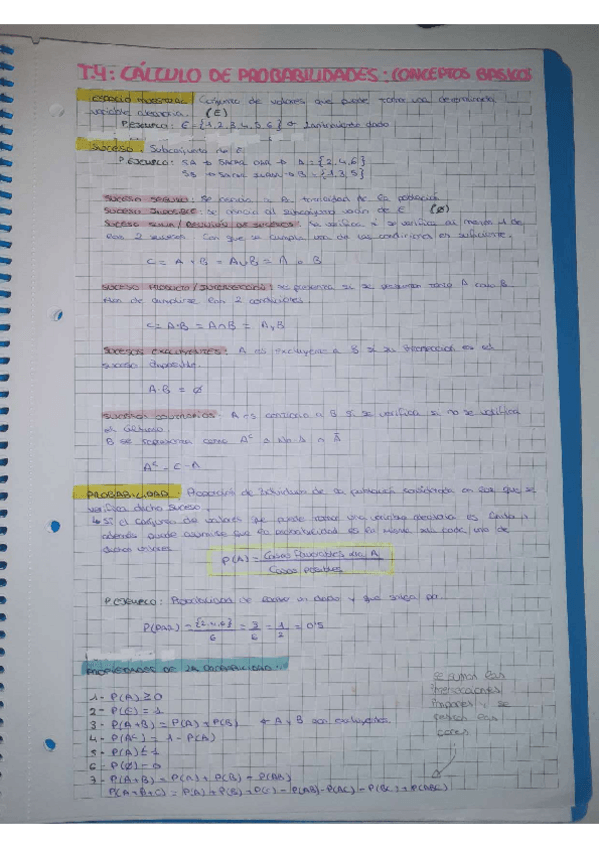 T.4: CÁLCULO DE PROBABILIDADES: CONCEPTOS BÁSICOS
ESPACIO MUESTRAL: Conjunto de valores que puede tomar una determinada
variable aleatoria. (E)
P.EJEMPLO: E = {1,2,3,4,5,6} dado
SUCESO: Subconjunto de E.
P.EJEMPLO: SA → SACAR PAR → A = {2,4,6}
SB → SACAR IMPAR → B = {1,3,5}
SUCESO SEGURO: Se asocia a la totalidad de la población
SUCESO IMPOSIBLE: se asocia al subconjunto vacío de E (Ø)
SUCESO SUMA / : Se verifica si se verifica al menos 1 de
los 2 sucesos. Con que se cumpla una de las condiciones es suficiente.
C = A + B = A∪B = A o B
SUCESO PRODUCTO / INTERSECCIÓN: se presenta si se presentan tanto A como B
Han de cumplirse las 2 condiciones
C = A·B = A∩B = A y B
SUCESOS EXCLUYENTES: A es excluyente a B si su intersección es el
suceso imposible.
A·B = Ø
SUCESOS CONTRARIOS: A es contrario a B si se verifica si no se verifica
el último.
B se representa como Aᶜ o No A o Ā
Aᶜ = E - A
PROBABILIDAD: Proporción de individuos de la población considerada en los que se
verifica dicho suceso.
↳ Si el conjunto de valores que puede tomar una variable aleatoria es finito y
además puede asumirse que la probabilidad es la misma para cada uno de
dichos valores
P(A) = Casos favorables de A
Casos posibles
P.EJEMPLO: Probabilidad de lanzar un dado y que salga par
P(PAR) = {2,4,6} / 6 = 3/6 = 1/2 = 0'5
PROPIEDADES DE LA PROBABILIDAD:
1- P(A) ≥ 0
2- P(E) = 1
3- P(A+B) = P(A) + P(B) A y B son excluyentes
4- P(Aᶜ) = 1 - P(A)
5- P(A) ≤ 1
6- P(Ø) = 0
7- P(A+B) = P(A) + P(B) - P(AB)
P(A+B+C) = P(A) + P(B) + P(C) - P(AB) - P(AC) - P(BC) + P(ABC)
se suman las
intersecciones
impares y se
restan las
pares